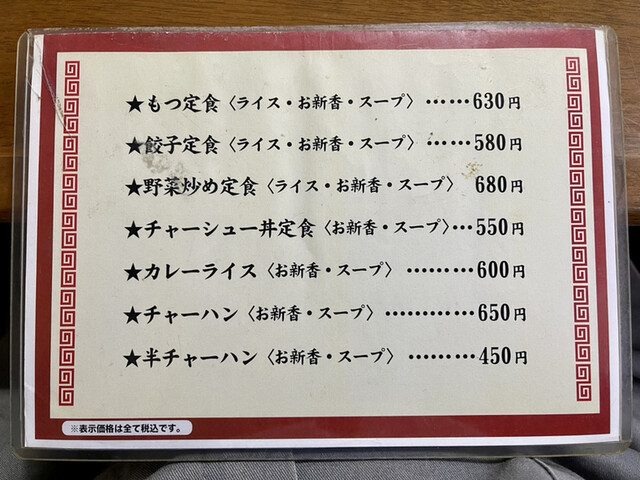 ★もつ定食〈ライス・お新香・スープ〉……630円
★餃子定食〈ライス・お新香・スープ〉……580円
★野菜炒め定食〈ライス・お新香・スープ〉 680円
★チャーシュー丼定食〈お新香・スープ〉…550円
★カレーライス〈お新香・スープ〉………600円
★チャーハン〈お新香・スープ〉…………650円
★半チャーハン〈お新香・スープ〉 ………450円
※表示価格は全て税込です。